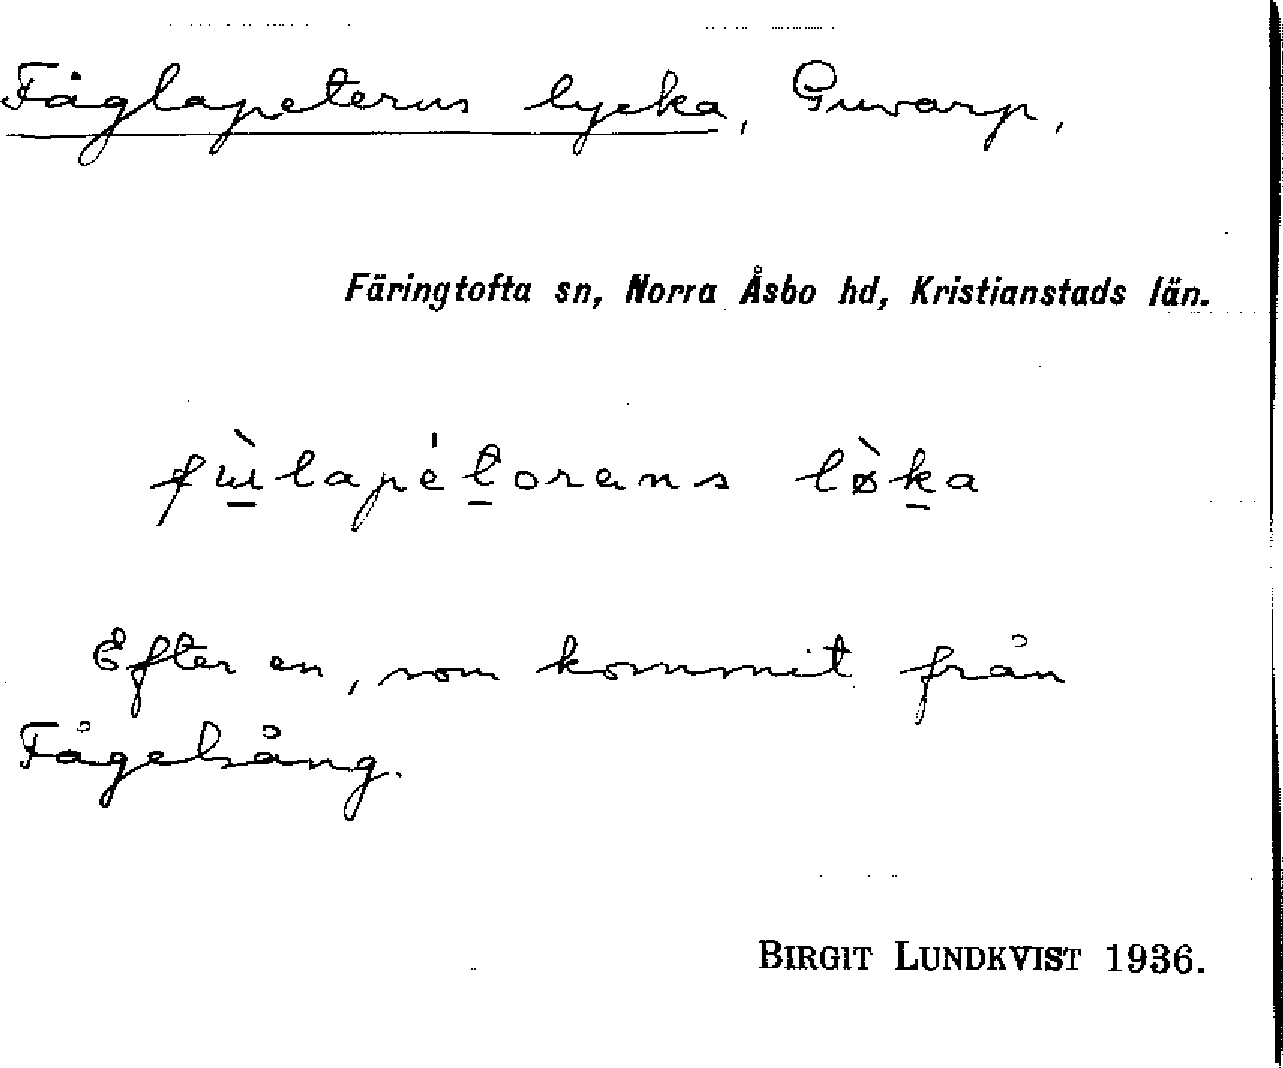 Fåglapeterus lycka, Guvarp,
Färingtofta sn, Norra Åsbo hd, Kristianstads län.
løka
Efter en, som kommit från
Fågelsång.
BIRGIT LUNDKVIST 1936.